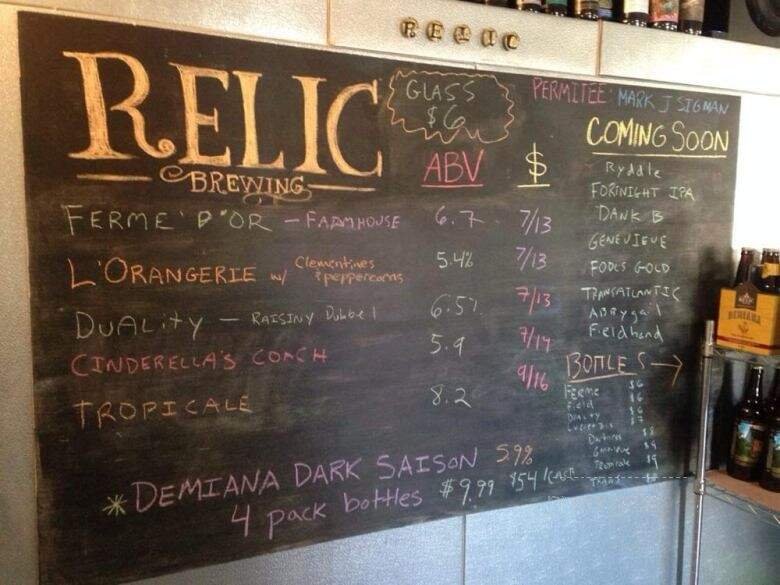 RELIC
RELIC
BREWING
GLASS
$6
PERMITEE: MARK J SIGMAN
COMING SOON
ABV $
FERME' D'OR - FARMHOUSE 6.7 7/13
L'ORANGERIE w/ Clementines & peppercorns 5.4% 7/13
DUALITY - RAISINY Dubbel 6.5% 7/13
CINDERELLA'S COACH 5.9 7/14
TROPICALE 8.2 9/16
* DEMIANA DARK SAISON 5.9%
4 pack bottles $9.99 $54/CASE
Ryddle
FORTNIGHT IPA
DANK B
GENEVIEVE
FOOLS GOLD
TRANSATLANTIC
ABBYgail
Fieldhand
BOTTLES →
FERME $6
Field $6
DUALITY $6
$7
GENEVIEVE $9
TROPICALE 9
TRANS
DEMIANA